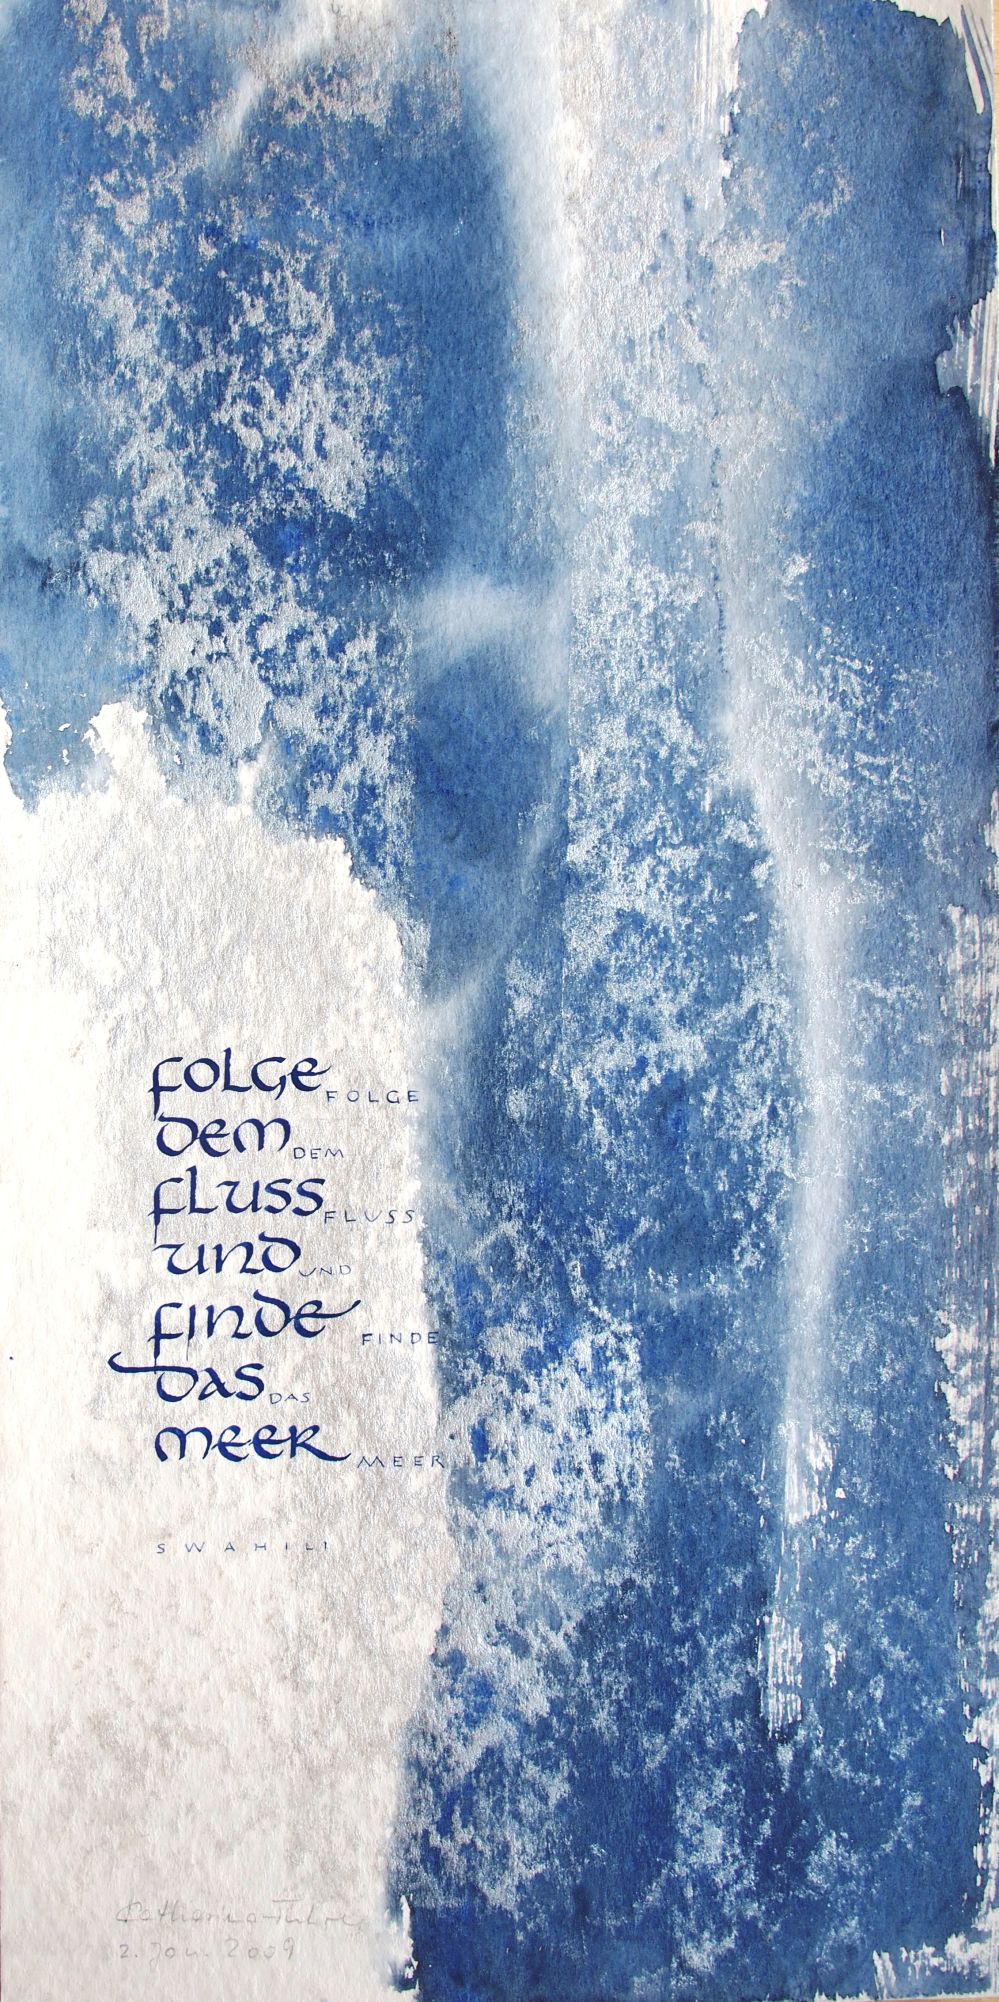 FOLGE FOLGE
DEM DEM
FLUSS FLUSS
UND UND
FINDE FINDE
DAS DAS
MEER MEER
SWAHILI
2. Jan. 2009